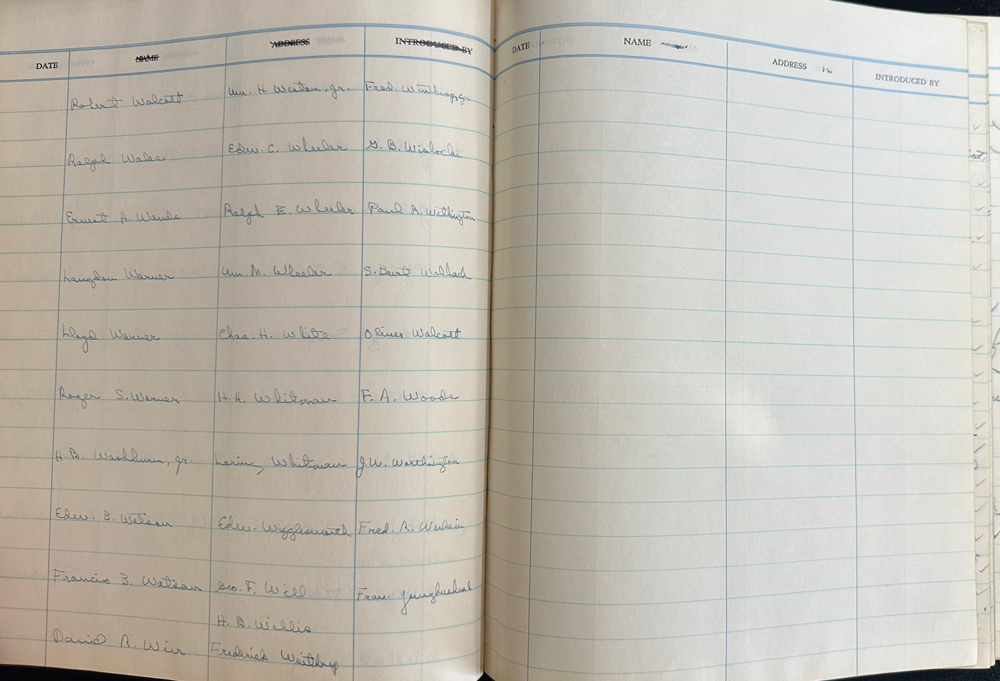 DATE NAME ADDRESS INTRODUCED BY
Robert Walcott Wm. H. Weston, Jr. Fred. Winthrop, Jr.
Ralph Edw. C. Wheeler G. B. Wislocki
Ernest H. Ralph E. Wheeler Paul A. Withington
Langdon Warner Wm. M. Wheeler S. Burt Wolbach
Lloyd Warner Chas. H. White Oliver Wolcott
Roger S. Warner H. H. Whitman F. A. Woods
H. B. Washburn, Jr. Loring Whitman J. W. Worthington
Edw. B. Watson Edw. Wigglesworth Fred. R. Wulsin
Francis B. Watson Geo. F. Will Fran. Younghusband
H. B. Willis
David A. Weir Frederick
DATE NAME ADDRESS INTRODUCED BY